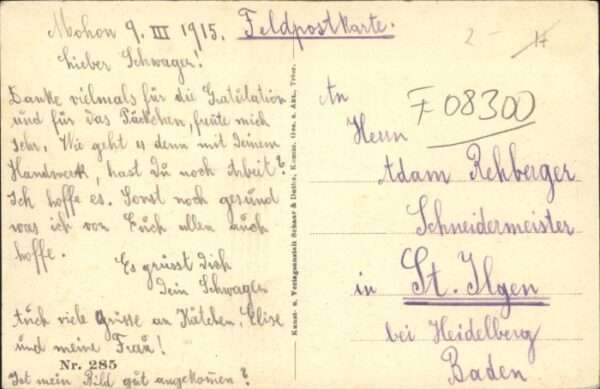 Mohon 9. III 1915. Feldpostkarte.
Lieber Schwager!
Danke vielmals für die Gratulation
und für das Päckchen, freute mich
sehr. Wie geht es denn mit Deinem
Handwerk, hast Du noch Arbeit?
Ich hoffe es. Sonst noch gesund
was ich von Euch allen auch
hoffe.
Es grüsst Dich
Dein Schwager
Auch viele Grüsse an Kätchen, Elise
und meine Frau!
Nr. 285
Ist mein Bild gut angekom̄en?
Kunst- u. Verlagsanstalt Schaar & Dathe, Komm.-Ges. a. Akt., Trier.
2-
F 08300
An
Herrn
Adam Rehberger
Schneidermeister
in St. Ilgen
bei Heidelberg
Baden